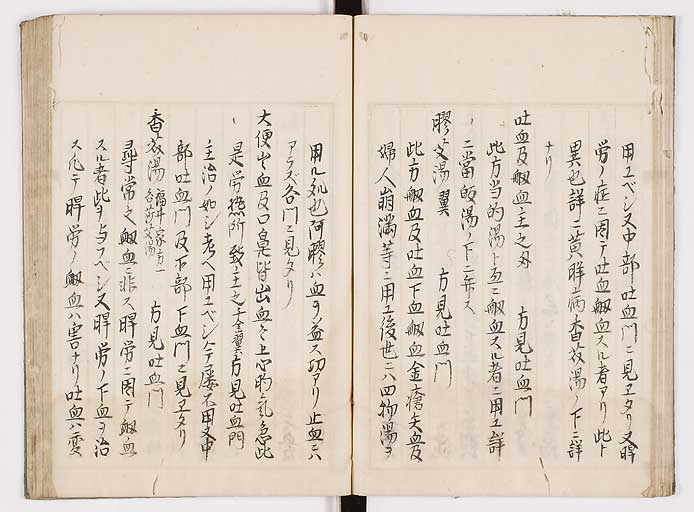 用ユベシ又中部吐血門ニ見ヱタリ又脾
労ノ症ニ因テ吐血衂血スル者アリ此ト
異也詳ニ黄胖病香蓯湯ノ下ニ詳
ナリ
吐血及衂血主之外 方見吐血門
此方当的湯ト互ニ衂血スル者ニ用ユ詳
ニ當的湯ノ下ニ弁ス
膠艾湯翼 方見吐血門
此方衂血及吐血下血衂血金瘡失血及
婦人崩漏等ニ用ユ後世ニハ四物湯ヲ
用ル処也阿膠ハ血ヲ益ス功アリ止血ニハ
アラズ各門ニ見タリ
大便出血及口鼻皆出血血上心胸気急此
是労熱所致主之千金翼方見吐血門
主治ノ如シ考ヘ用ユベシ今屡不用又中
部吐血門及下部下血門ニ見ヱタリ
香蓯湯 福井家方一名 方見吐血門
尋常之衂血ニ非ス脾労ニ因テ衂血
スル者此ヲ与フベシ又脾労ノ下血ヲ治
ス凡テ脾労ノ衂血ハ害ナリノ吐血ハ変